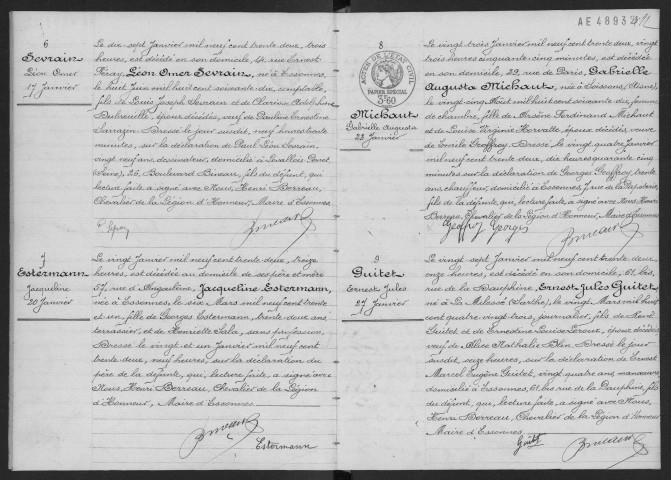 6
Sevrain
Léon Omer
17 Janvier
Le dix sept Janvier mil neuf cent trente deux, trois
heures, est décédé en son domicile, 14, rue Ernest
Féray, Léon Omer Sevrain, né à Essonnes,
le huit Juin mil huit cent soixante dix, comptable,
fils de Louis Joseph Sevrain et de Clarisse Adolphine
Dubreuille, époux décédés, veuf de Pauline Ernestine
Sarrazin. Dressé le jour susdit, neuf heures trente
minutes, sur la déclaration de Paul Léon Sevrain,
vingt neuf ans, dessinateur, domicilié à Levallois Perret
(Seine), 25, Boulevard Bineau, fils du défunt, qui
lecture faite a signé avec Nous, Henri Berreau,
Chevalier de la Légion d'Honneur, Maire d'Essonnes.
7
Estermann
Jacqueline
20 Janvier
Le vingt Janvier mil neuf cent trente deux, treize
heures, est décédée au domicile de ses père et mère
57, rue d'Angoulême, Jacqueline Estermann,
née à Essonnes, le six Mars mil neuf cent trente
et un, fille de Georges Estermann, trente deux ans
terrassier, et de Henriette Sala, sans profession.
Dressé le vingt et un Janvier mil neuf cent
trente deux, neuf heures, sur la déclaration du
père de la défunte, qui, lecture faite, a signé avec
Nous, Henri Berreau, Chevalier de la Légion
d'Honneur, Maire d'Essonnes.
Estermann
AE 48932
8
ACTES DE L'ETAT CIVIL
PAPIER SPECIAL
3f60
Michaut
Gabrielle Augusta
23 Janvier
Le vingt trois Janvier mil neuf cent trente deux, vingt
trois heures cinquante cinq minutes, est décédée
en son domicile, 29, rue de Paris, Gabrielle
Augusta Michaut, née à Soissons (Aisne),
le vingt cinq Août mil huit cent soixante dix, femme
de chambre, fille de Arsène Ferdinand Michaut
et de Louise Virginie Horvatte, époux décédés, veuve
de Camille Geoffroy. Dressé le vingt quatre Janvier
mil neuf cent trente deux, dix heures quarante cinq
minutes sur la déclaration de Georges Geoffroy, trente
ans, chauffeur, domicilié à Essonnes, rue de la Papeterie,
fils de la défunte, que, lecture faite, a signé avec Nous Henri
Berreau, Chevalier de la Légion d'Honneur, Maire d'Essonnes.
Geoffroy Georges
9
Guitet
Ernest Jules
27 Janvier
Le vingt sept Janvier mil neuf cent trente deux
onze heures, est décédé en son domicile, 61 bis,
rue de la Dauphine, Ernest Jules Guitet,
né à La Milesse (Sarthe), le vingt Mars mil huit
cent quatre vingt trois, journalier, fils de René
Guitet et de Ernestine Louise Leroux, époux décédés
veuf de Alice Nathalie Blin. Dressé le jour
susdit, seize heures, sur la déclaration de Ernest
Marcel Eugène Guitet, vingt quatre ans, manœuvre
domicilié à Essonnes, 61 bis rue de la Dauphine, fils du
défunt, qui, lecture faite, a signé avec Nous,
Henri Berreau, Chevalier de la Légion d'Honneur
Maire d'Essonnes.
Guitet